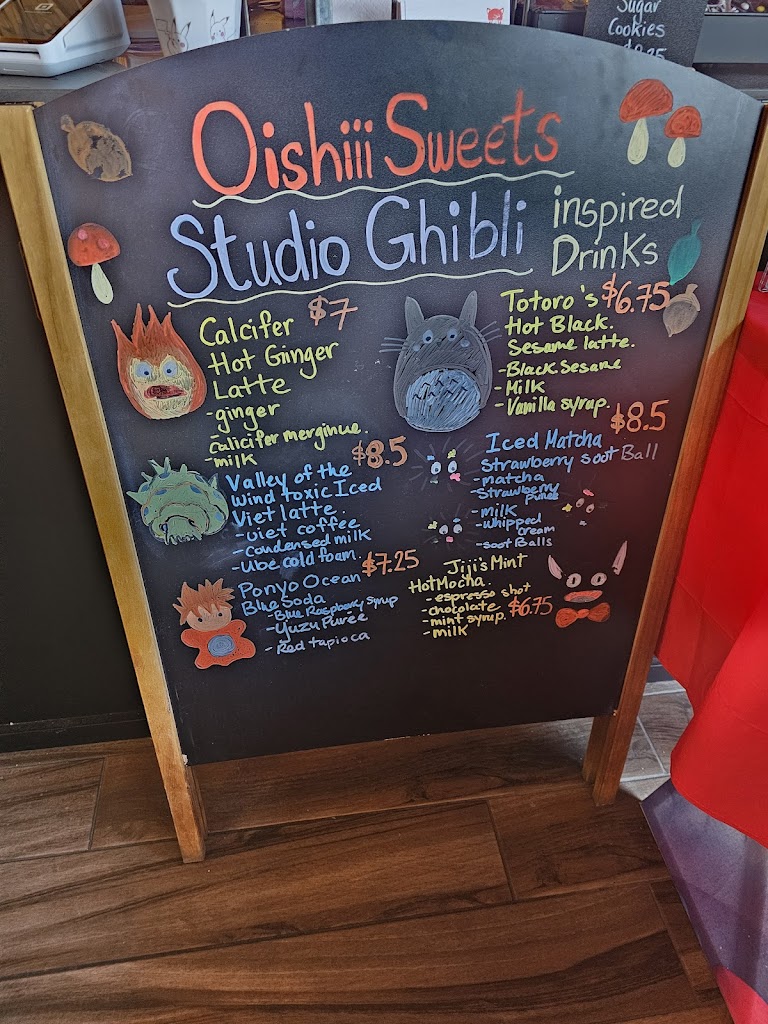 Sugar
Cookies
Oishiii Sweets
Studio Ghibli inspired
Drinks
Calcifer $7
Hot Ginger
Latte
-ginger
calicifer merginue.
-milk
Totoro's $6.75
Hot Black
Sesame latte.
-Black Sesame
-Milk
-Vanilla syrup.
Valley of the $8.5
Wind toxic Iced
Viet latte.
-viet coffee
-condensed milk
-Ube cold foam.
$8.5
Iced Matcha
Strawberry soot Ball
-matcha
-Strawberry
Puree
-milk
-whipped
cream
-soot Balls
Ponyo Ocean $7.25
Blue Soda
-Blue Raspberry syrup
-Yuzu Purée
-Red tapioca
Jiji's Mint
Hot Mocha.
-espresso shot
-chocolate $6.75
-mint syrup.
-milk